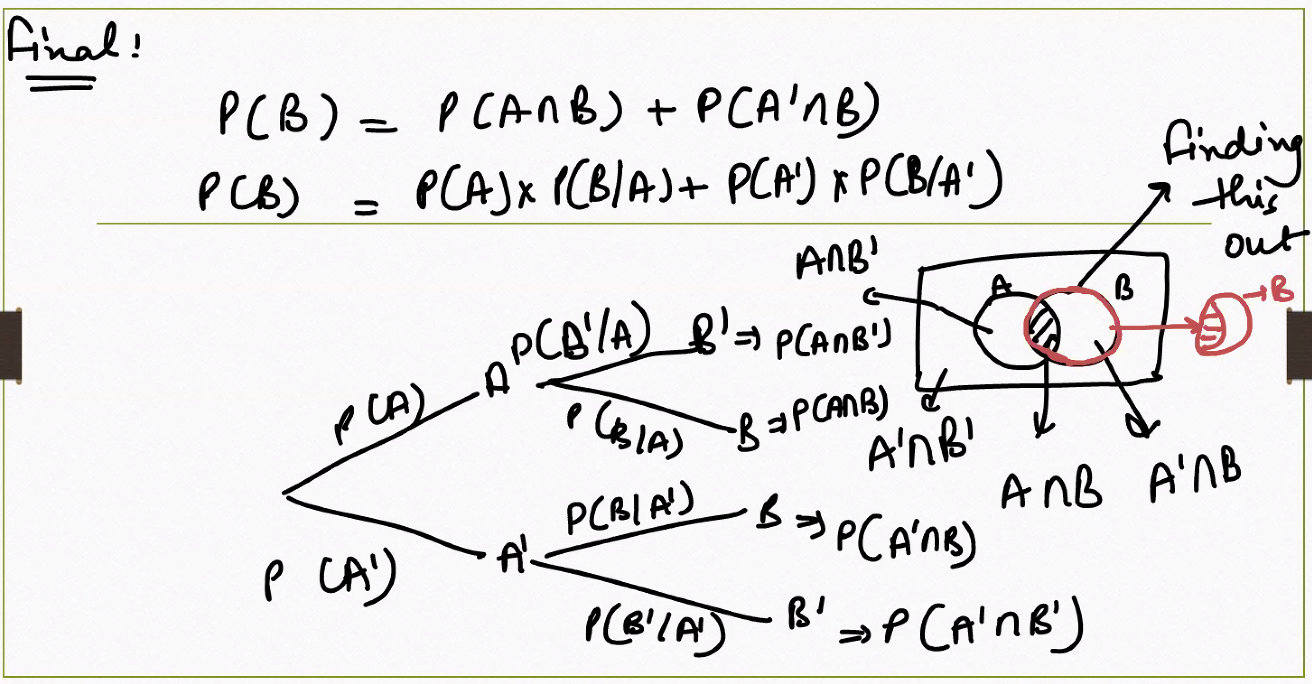 Final!
P(B) = P(A∩B) + P(A'∩B)
P(B) = P(A) x P(B/A) + P(A') x P(B/A')
finding
this
out
A∩B'
A
B
→B
P(B'/A)
B' ⇒ P(A∩B')
A
P(A)
P(B/A)
B ⇒ P(A∩B)
A'∩B'
A∩B
A'∩B
P(B/A')
B ⇒ P(A'∩B)
A'
P(A')
P(B'/A')
B' ⇒ P(A'∩B')